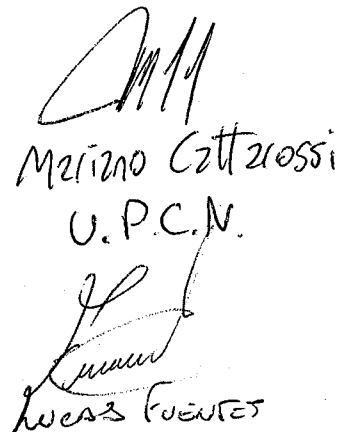 Mariano Cattarossi
U.P.C.N.
Lucas Fuentes